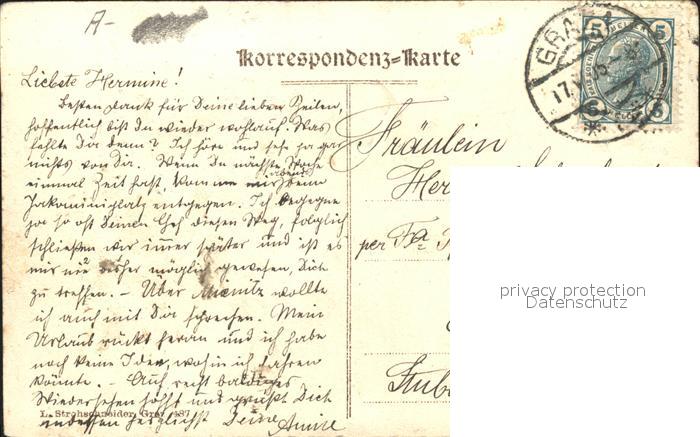 A-
Korrespondenz=Karte
GRAZ
17.
5 5
5 5
Liebste Hermine!
Besten dank für Deine lieben Zeilen,
hoffentlich bist Du wieder wohlauf. Was
fehlte Dir denn? Ich höre und sehe ja gar
nichts von Dir. Wenn Du nächste Woche
einmal Zeit hast, komm mir abends beim
Jakominiplatz entgegen. Ich begegne
ja so oft Deinen Chef diesen Weg, folglich
schließen wir immer später und ist es
mir nie bisher möglich gewesen, Dich
zu treffen. – Über Mixnitz wollte
ich auch mit Dir sprechen. Mein
Urlaub rückt heran und ich habe
noch keine Idee, wohin ich fahren
könnte. – Auf recht baldiges
Wiedersehen hofft und grüßt Dich
indessen herzlichst Deine
L. Strohschneider, Graz 187
Fräulein
Her
per Fa
Stub
privacy protection
Datenschutz